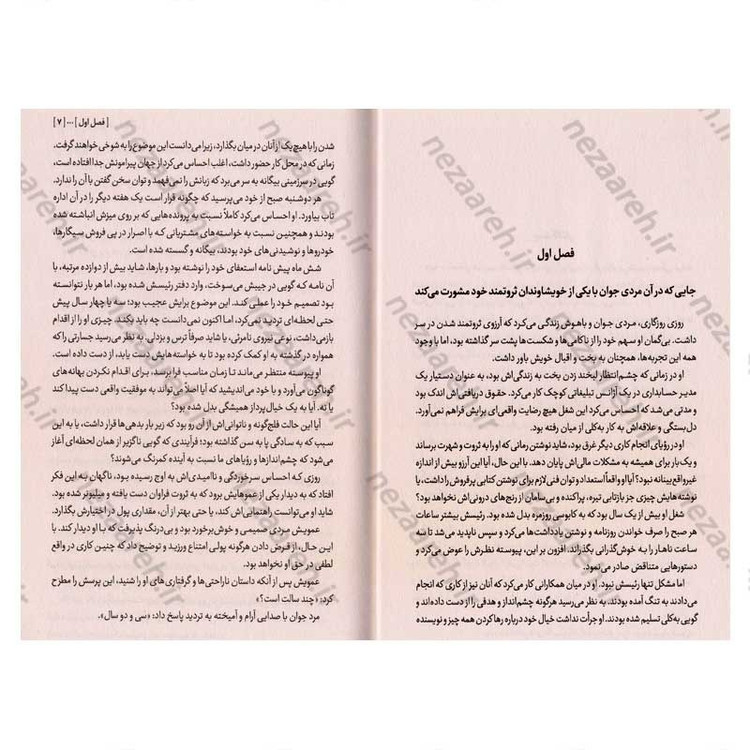 فصل اول
جایی که در آن مردی جوان با یکی از خویشاوندان ثروتمند خود مشورت می‌کند
روزی روزگاری، مردی جوان و باهوش زندگی می‌کرد که آرزوی ثروتمند شدن در سر
داشت. بی‌گمان او سهم خود را از ناکامی‌ها و شکست‌ها پشت سر گذاشته بود، اما با وجود
همه این تجربه‌ها، همچنان به بخت و اقبال خویش باور داشت.
او در زمانی که چشم‌انتظار لبخند زدن بخت به زندگی‌اش بود، به عنوان دستیار یک
مدیر حسابداری در یک آژانس تبلیغاتی کوچک کار می‌کرد. حقوق دریافتی‌اش اندک بود
و مدتی می‌شد که احساس می‌کرد این شغل هیچ رضایت واقعی‌ای برایش فراهم نمی‌آورد.
دل‌بستگی و علاقه‌اش به کار به‌کلی از میان رفته بود.
او در رؤیای انجام کاری دیگر غرق بود، شاید نوشتن رمانی که او را به ثروت و شهرت برساند
و یک بار برای همیشه به مشکلات مالی‌اش پایان دهد. با این حال، آیا این آرزو بیش از اندازه
غیرواقع‌بینانه نبود؟ آیا او واقعاً استعداد و توان فنی لازم برای نوشتن کتابی پرفروش را داشت، یا
نوشته‌هایش چیزی جز بازتابی تیره، پراکنده و بی‌سامان از رنج‌های درونی‌اش نخواهد بود؟
شغل او بیش از یک سال بود که به کابوسی روزمره بدل شده بود. رئیسش بیشتر ساعات
هر صبح را صرف خواندن روزنامه و نوشتن یادداشت‌ها می‌کرد و سپس ناپدید می‌شد تا سه
ساعت ناهار را به خوش‌گذرانی بگذراند. افزون بر این، پیوسته نظرش را عوض می‌کرد و
دستورهایی متناقض صادر می‌نمود.
اما مشکل تنها رئیسش نبود. او در میان همکارانی کار می‌کرد که آنان نیز از کاری که انجام
می‌دادند به تنگ آمده بودند. به نظر می‌رسید هرگونه چشم‌انداز و هدفی را از دست داده‌اند و
گویی به‌کلی تسلیم شده بودند. او جرأت نداشت خیال خود درباره رها کردن همه چیز و نویسنده
[ فصل اول ] ... [ ۷ ]
شدن را با هیچ یک از آنان در میان بگذارد، زیرا می‌دانست این موضوع را به شوخی خواهند گرفت.
زمانی که در محل کار حضور داشت، اغلب احساس می‌کرد از جهان پیرامونش جدا افتاده است،
گویی در سرزمینی بیگانه به سر می‌برد که زبانش را نمی‌فهمد و توان سخن گفتن با آن را ندارد.
هر دوشنبه صبح از خود می‌پرسید که چگونه قرار است یک هفته دیگر را در آن اداره
تاب بیاورد. او احساس می‌کرد کاملاً نسبت به پرونده‌هایی که بر روی میزش انباشته شده
بودند و همچنین نسبت به خواسته‌های مشتریانی که با اصرار در پی فروش سیگارها،
خودروها و نوشیدنی‌های خود بودند، بیگانه و گسسته شده است.
شش ماه پیش نامه استعفای خود را نوشته بود و بارها، شاید بیش از دوازده مرتبه، با
آن نامه که گویی در جیبش می‌سوخت، وارد دفتر رئیسش شده بود، اما هر بار نتوانسته
بود تصمیم خود را عملی کند. این موضوع برایش عجیب بود؛ سه یا چهار سال پیش
حتی لحظه‌ای تردید نمی‌کرد، اما اکنون نمی‌دانست چه باید بکند. چیزی او را از اقدام
بازمی‌داشت، نوعی نیروی نامرئی، یا شاید صرفاً ترس و بزدلی. به نظر می‌رسید جسارتی را که
همواره در گذشته به او کمک کرده بود تا به خواسته‌هایش دست یابد، از دست داده است.
او پیوسته منتظر می‌ماند تا زمان مناسب فرا برسد، برای اقدام نکردن بهانه‌های
گوناگون می‌آورد و با خود می‌اندیشید که آیا اصلاً می‌تواند به موفقیت واقعی دست پیدا کند
یا نه. آیا به یک خیال‌پرداز همیشگی بدل شده بود؟
آیا این حالت فلج‌گونه و ناتوانی‌اش از آن رو بود که زیر بار بدهی‌ها قرار داشت، یا به این
سبب که به سادگی پا به سن گذاشته بود؛ فرآیندی که گویی ناگزیر از همان لحظه‌ای آغاز
می‌شود که چشم‌اندازها و رؤیاهای ما نسبت به آینده کمرنگ می‌شوند؟
روزی که احساس سرخوردگی و ناامیدی‌اش به اوج رسیده بود، ناگهان به این فکر
افتاد که به دیدار یکی از عموهایش برود که به ثروت فراوان دست یافته و میلیونر شده بود.
شاید او می‌توانست راهنمایی‌اش کند، یا حتی بهتر از آن، مقداری پول در اختیارش بگذارد.
عمویش مردی صمیمی و خوش‌برخورد بود و بی‌درنگ پذیرفت که با او دیدار کند. با
این حال، از قرض دادن هرگونه پولی امتناع ورزید و توضیح داد که چنین کاری در واقع
لطفی در حق او نخواهد بود.
عمویش پس از آنکه داستان ناراحتی‌ها و گرفتاری‌های او را شنید، این پرسش را مطرح
کرد: «چند سالت است؟»
مرد جوان با صدایی آرام و آمیخته به تردید پاسخ داد: «سی و دو سال».
nezaareh.ir